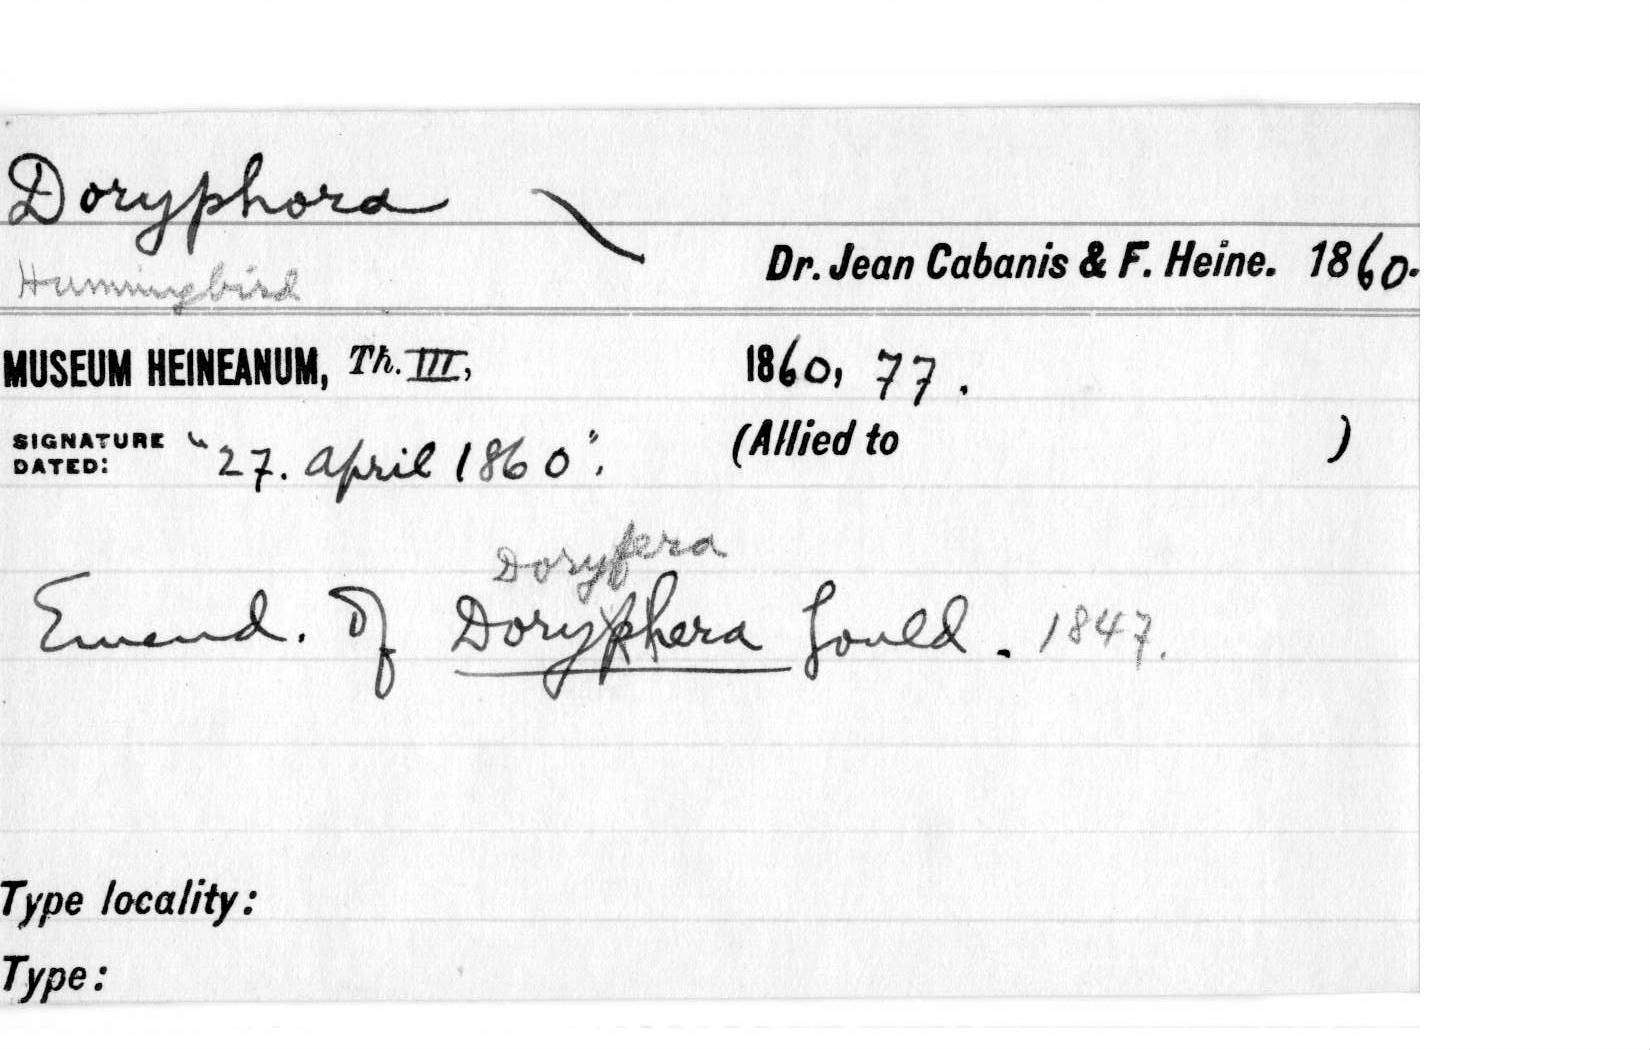 Doryphora
Hummingbird
Dr. Jean Cabanis & F. Heine. 1860.
MUSEUM HEINEANUM, Th. III, 1860, 77.
SIGNATURE DATED: "27. April 1860".
(Allied to )
Doryfera
Emend. of Doryphera Gould. 1847.
Type locality:
Type: